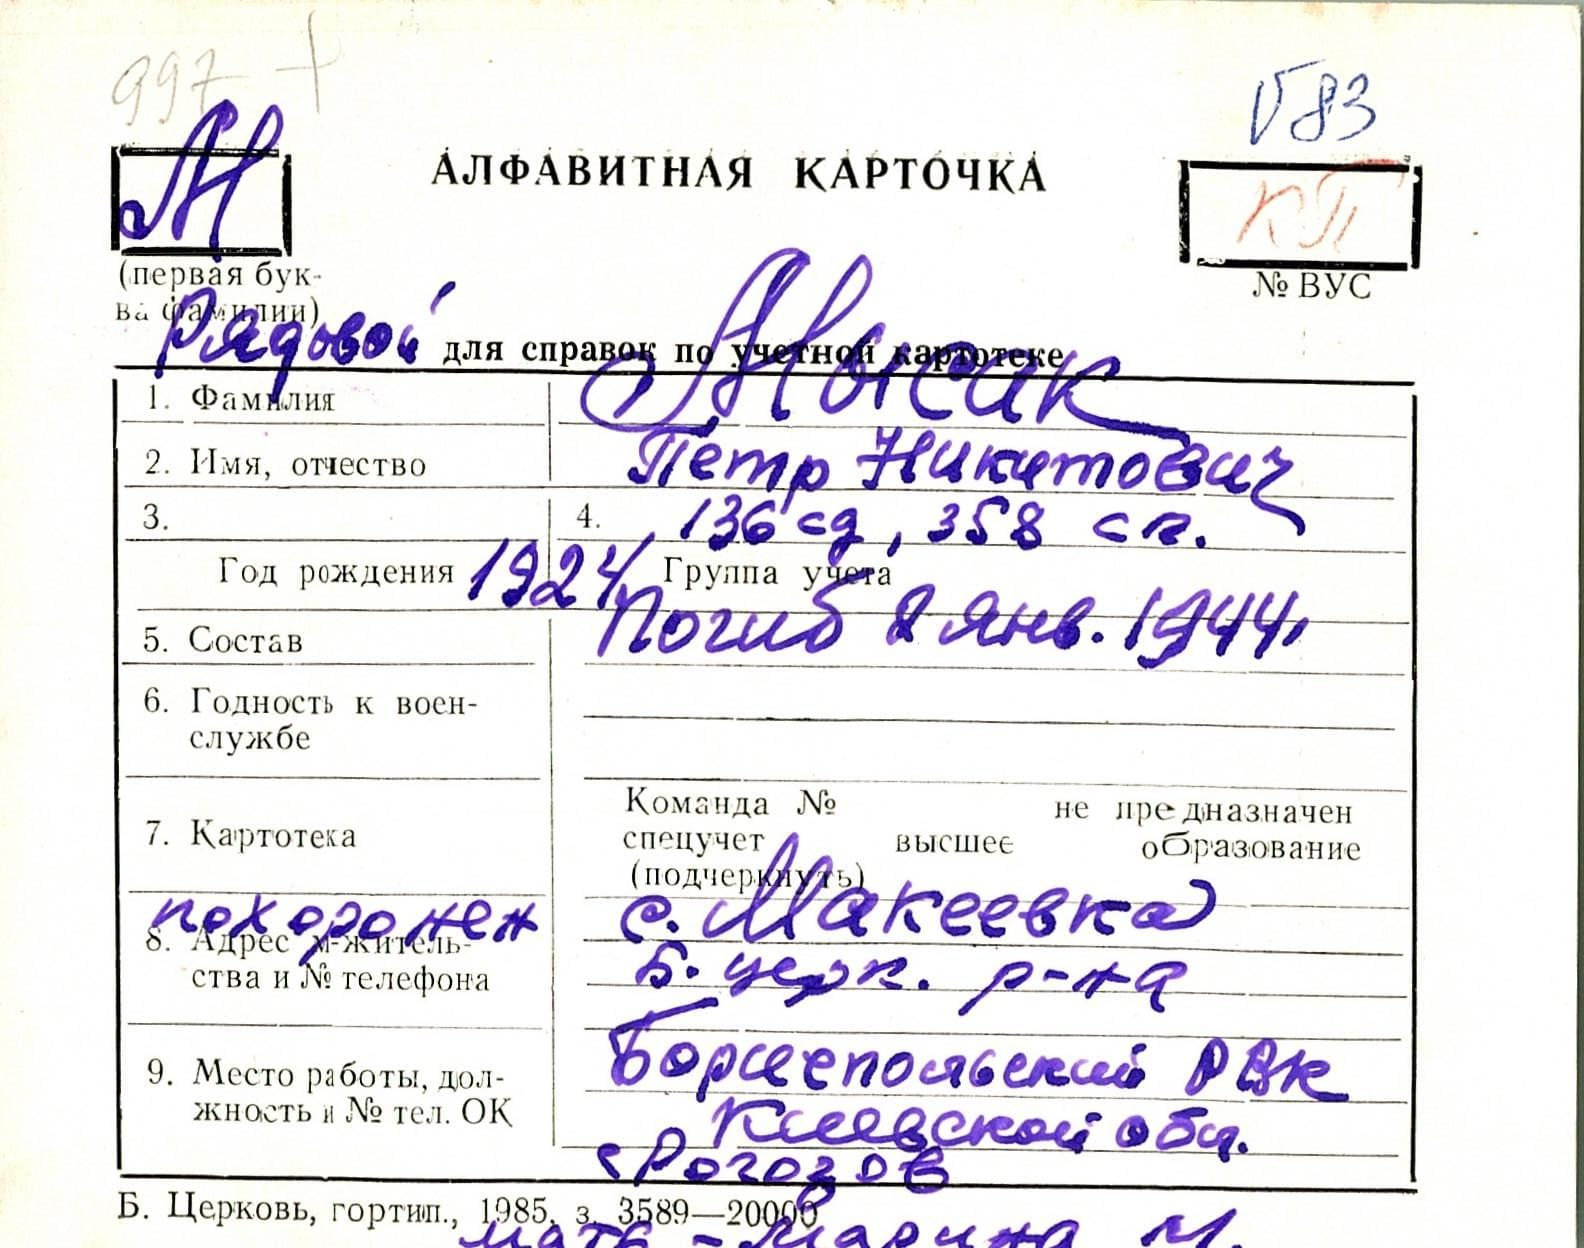 997 +
V 83
М
АЛФАВИТНАЯ КАРТОЧКА
КП
(первая бук-
ва фамилии)
№ ВУС
Рядовой
для справок по учетной картотеке
1. Фамилия Мысак
2. Имя, отчество Петр Никитович
3. 4. 136 сд, 358 сп.
Год рождения 1924 Группа учета
5. Состав Погиб 8 янв. 1944
6. Годность к воен-
службе
Команда № не предназначен
7. Картотека спецучет высшее образование
(подчеркнуть)
похоронен с. Макеевка
8. Адрес м-житель-
ства и № телефона Б. церк. р-на
Бориспольский РВК
9. Место работы, дол-
жность и № тел. ОК Киевской обл.
с Рогозов
Б. Церковь, гортип., 1985, з. 3589—20000
мать - Марина М.